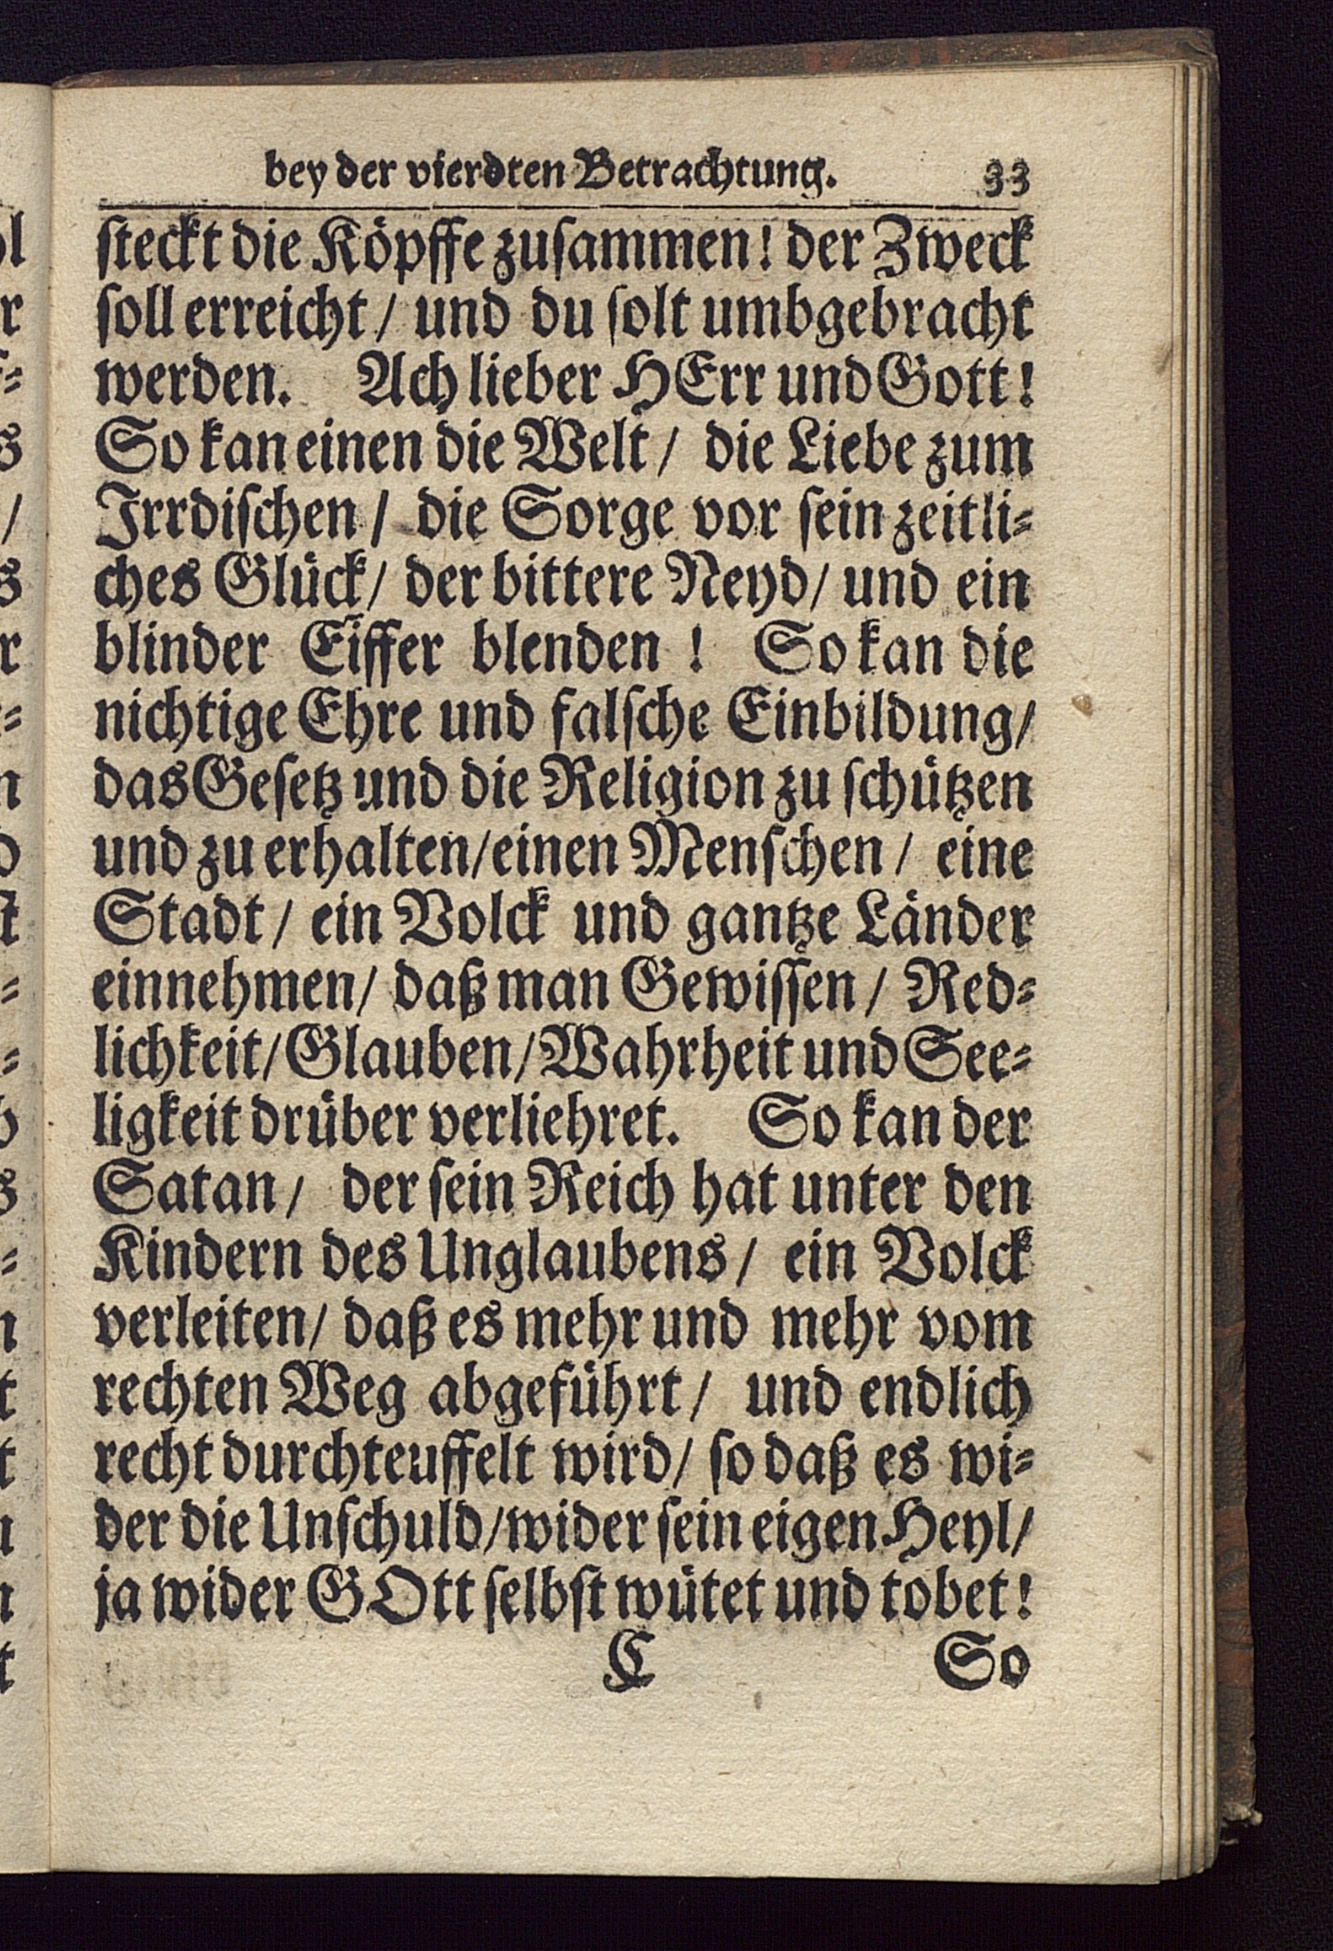 bey der vierdten Betrachtung. 33
steckt die Köpffe zusammen! der Zweck
soll erreicht/ und du solt umbgebracht
werden. Ach lieber HErr und Gott!
So kan einen die Welt/ die Liebe zum
Irrdischen/ die Sorge vor sein zeitli-
ches Glück/ der bittere Neyd/ und ein
blinder Eiffer blenden! So kan die
nichtige Ehre und falsche Einbildung/
das Gesetz und die Religion zu schützen
und zu erhalten/einen Menschen/ eine
Stadt/ ein Volck und gantze Länder
einnehmen/ daß man Gewissen/ Red-
lichkeit/Glauben/Wahrheit und See-
ligkeit drüber verliehret. So kan der
Satan/ der sein Reich hat unter den
Kindern des Unglaubens/ ein Volck
verleiten/ daß es mehr und mehr vom
rechten Weg abgeführt/ und endlich
recht durchteuffelt wird/ so daß es wi-
der die Unschuld/wider sein eigen Heyl/
ja wider GOtt selbst wütet und tobet!
C So